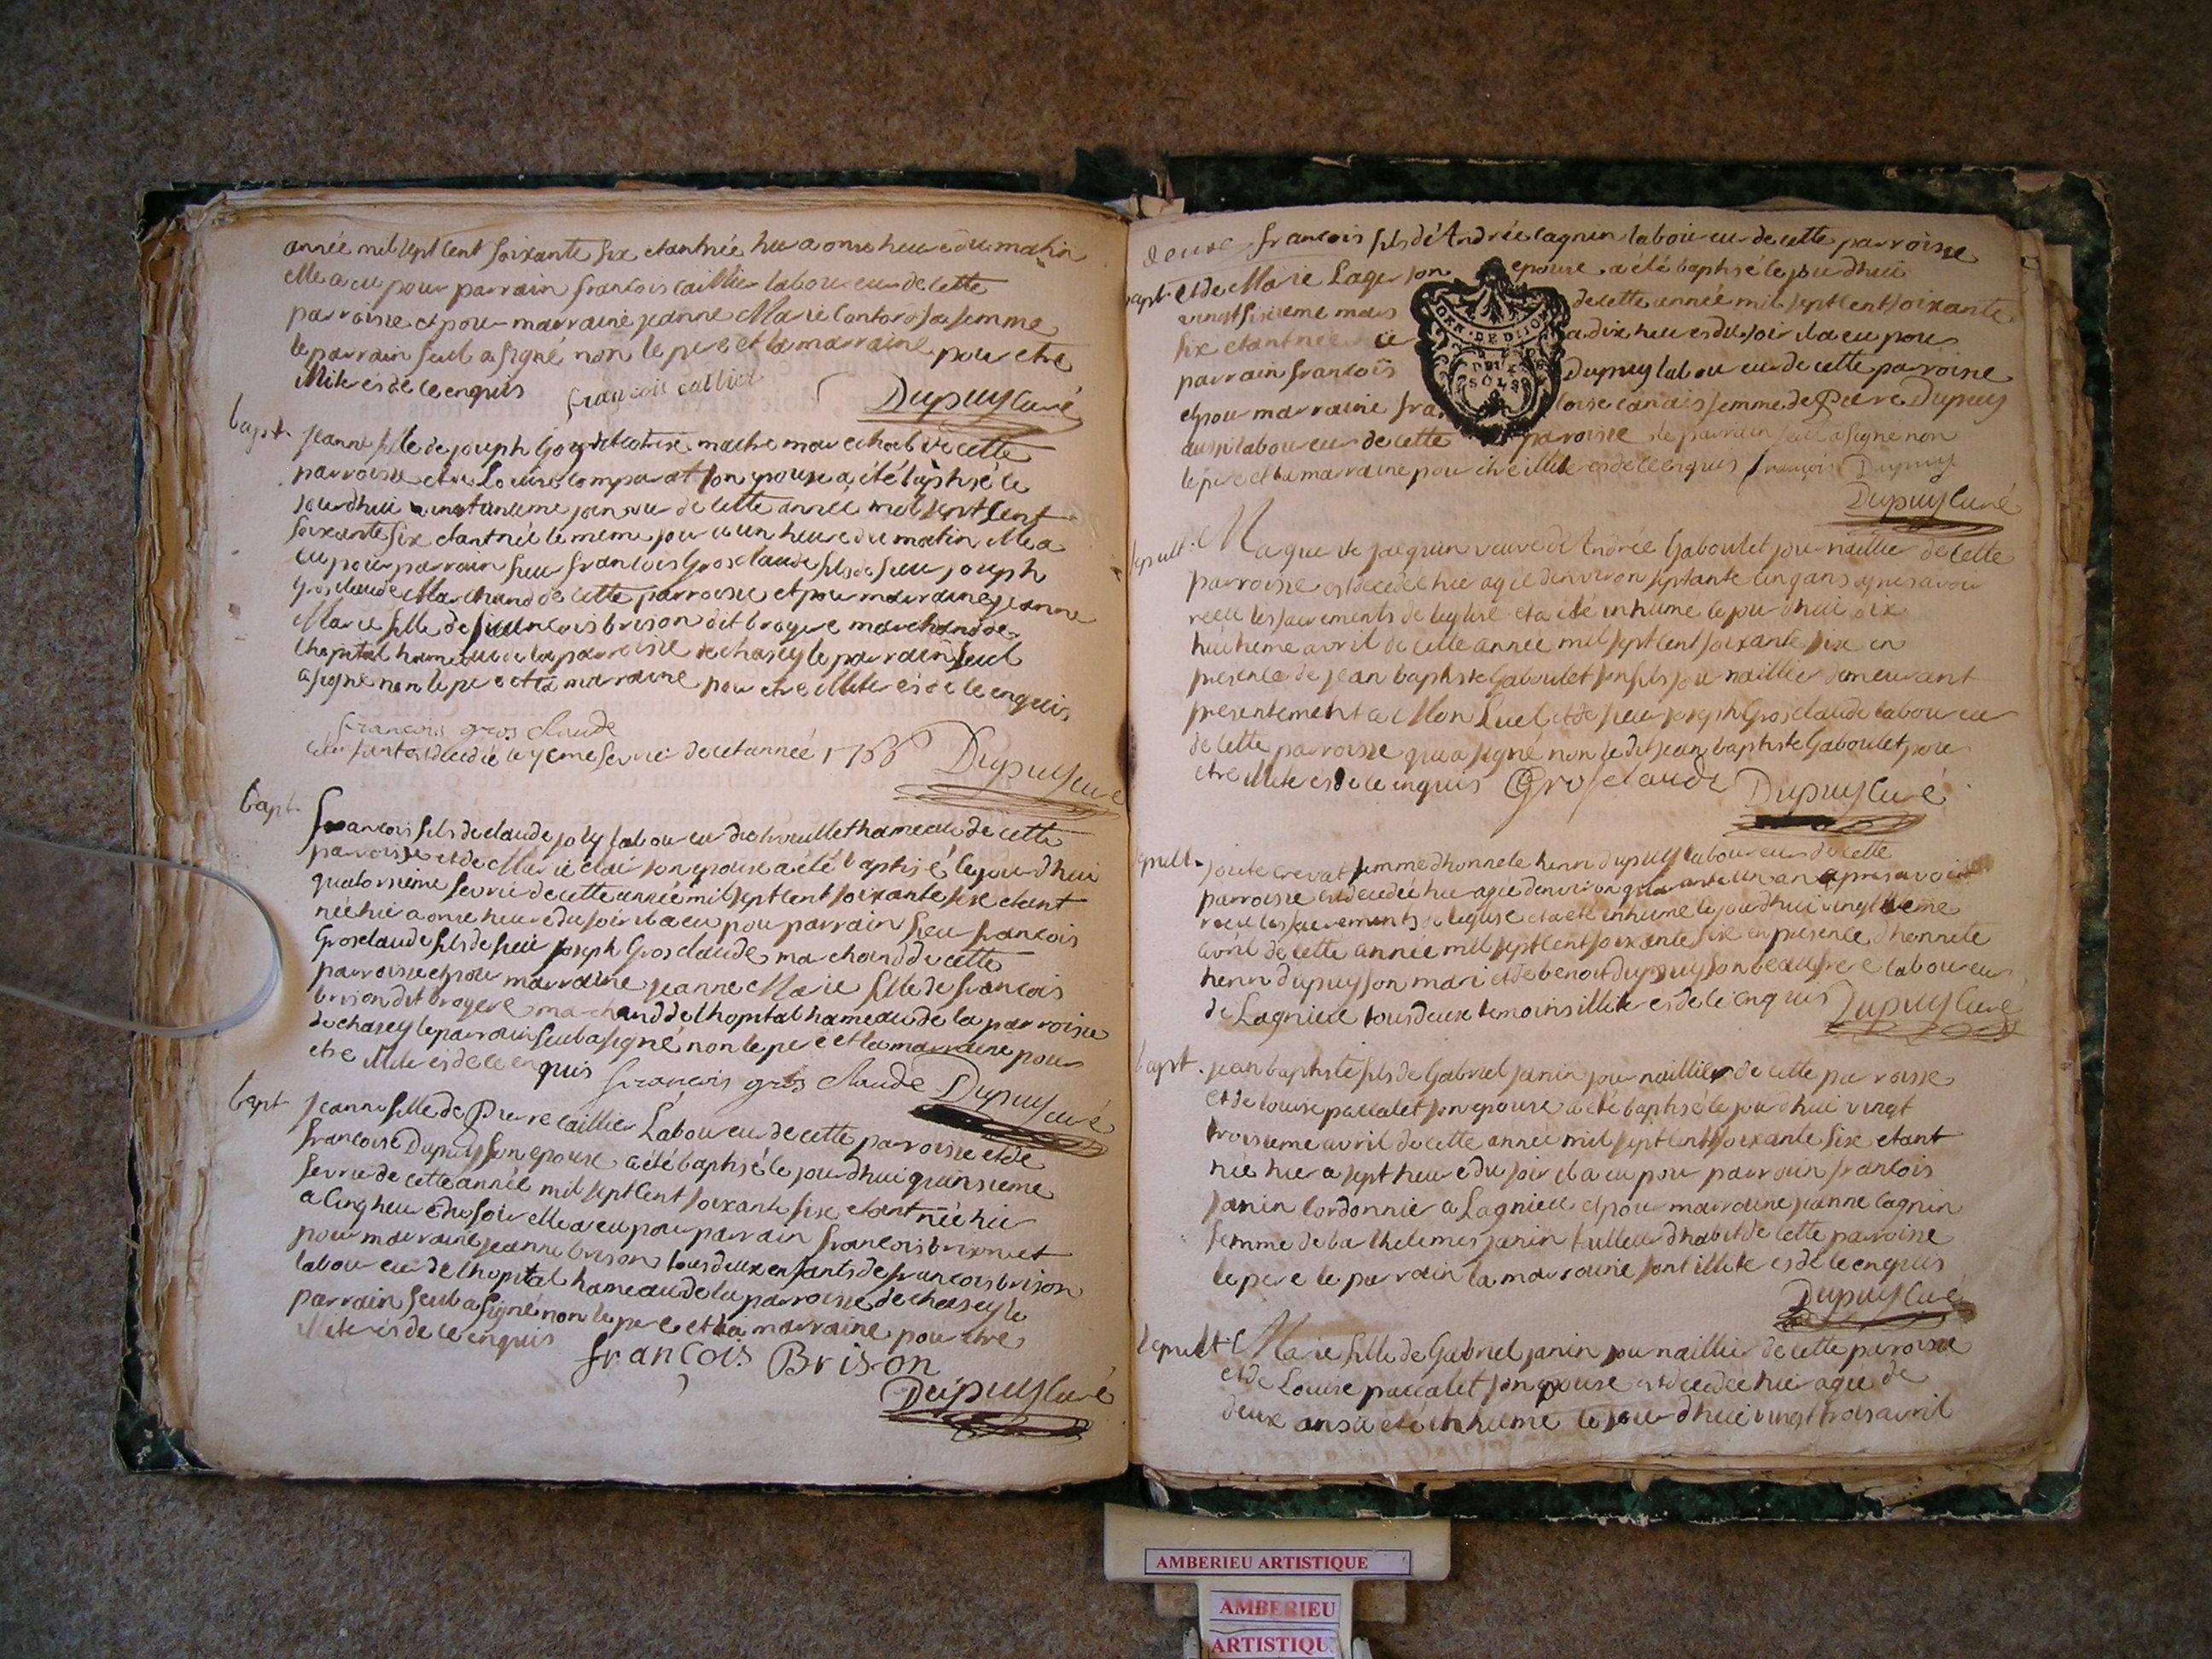 année mil sept cent soixante six etant née hier a onze heure du matin
elle a eu pour parrain francois caillier laboureur de cette
parroisse et pour marraine jeanne Marie Contord sa femme
le parrain seul a signé non le pere et la marraine pour etre
illiterés de ce enquis francois callier Dupuy curé
bapt. jeanne fille de joseph maitre marechal de cette
parroisse et de Louise comparat son epouse a été baptisé le
jourdhui vingt unieme janvier de cette année mil sept cent
soixante six etant née le meme jour a un heure du matin elle a
eu pour parrain sieur francois Grosclaude fils de sieur joseph
Grosclaude Marchand de cette parroisse et pour marraine jeanne
Marie fille de francois brison dit brogere marchand de
lhopital hameau de la parroisse de chasey le parrain seul
a signé non le pere et la marraine pour etre illiterés de ce enquis
francois gros claude
decedée le 7eme fevrier de cet année 1766 Dupuy curé
bapt. francois fils de claude joly laboureur hameau de cette
parroisse et de Marie son epouse a été baptisé le jourdhui
quatorsieme fevrier de cette année mil sept cent soixante six etant
née hier a onze heure du soir il a eu pour parrain sieur francois
Grosclaude fils de sieur joseph Grosclaude marchand de cette
parroisse et pour marraine jeanne Marie fille de francois
brison dit brogere marchand de lhopital hameau de la parroisse
de chasey le parrain seul a signé non le pere et la marraine pour
etre illiterés de ce enquis francois gros claude Dupuy curé
bapt. jeanne fille de Pierre caillier Laboureur de cette parroisse et de
francoise Dupuy son epouse a été baptisé le jourdhui quinsieme
fevrier de cette année mil sept cent soixante six etant née hier
a cinq heure du soir elle a eu pour parrain francois brison et
pour marraine jeanne brison tous deux enfants de francois brison
laboureur de lhopital hameau de la parroisse de chasey le
parrain seul a signé non le pere et la marraine pour etre
illiterés de ce enquis
françois Brison
Dupuy curé
deuxe francois fils d'André cagnin laboureur de cette parroisse
bapt. et de Marie Lager son epouse a été baptisé le jourdhui
vingt sixieme mars de cette année mil sept cent soixante
six etant née a dix heures du soir il a eu pour
parrain francois Dupuy laboureur de cette parroisse
et pour marraine francoise canard femme de Pierre Dupuy
aussi laboureur de cette parroisse le parrain seul a signé non
le pere et la marraine pour etre illiterés de ce enquis françois Dupuy
Dupuy curé
GEN. DE DIJON
DEUX
SOLS
sepult. jacquin veuve de André Gaboulet journaillier de cette
parroisse est decedée hier agée denviron septante cinq ans apres avoir
recu les sacrements de leglise et a été inhumé le jourdhui dix
huitieme avril de cette année mil sept cent soixante six en
presence de jean baptiste Gaboulet son fils journaillier demeurant
presentement a Mon Luel et de sieur joseph Grosclaude laboureur
de cette parroisse qui a signé non le dit jean baptiste Gaboulet pour
etre illiterés de ce enquis Grosclaude Dupuy curé
sepult. crevat femme dhonnete henri dupuy laboureur de cette
parroisse est decedée hier agée denviron quarante un an apres avoir
recu les sacrements de leglise et a été inhumé le jourdhui
avril de cette année mil sept cent soixante six en presence dhonnete
henri dupuy son mari et de benoit dupuy son beaufrere laboureur
de Lagnieu tous deux temoins illiterés de ce enquis Dupuy curé
bapt. jean baptiste fils de Gabriel janin journaillier de cette parroisse
et de louise paccalet son epouse a été baptisé le jourdhui vingt
troisieme avril de cette année mil sept cent soixante six etant
née hier a sept heure du soir il a eu pour parrain francois
janin cordonnier a Lagnieu et pour marraine jeanne cagnin
femme de barthelemis janin tailleur dhabit de cette parroisse
le pere le parrain la marraine sont illiterés de ce enquis
Dupuy curé
sepult. Marie fille de Gabriel janin journaillier de cette parroisse
et de Louise paccalet son epouse est decedée hier agée de
deux ans a été inhumé le jourdhui vingt trois avril
AMBERIEU ARTISTIQUE
AMBERIEU
ARTISTIQU